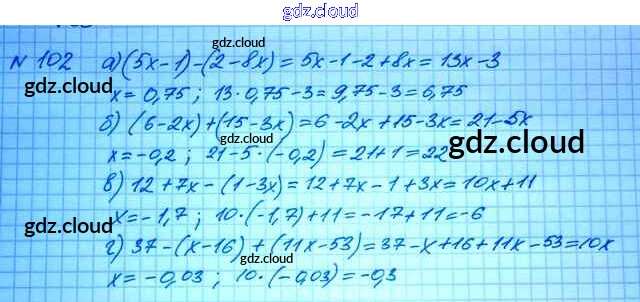 gdz.cloud
№ 102 а) (5x-1)-(2-8x)=5x-1-2+8x=13x-3
gdz.cloud
gdz.cloud
x=0,75; 13·0,75-3=9,75-3=6,75
gdz.cloud
б) (6-2x)+(15-3x)=6-2x+15-3x=21-5x
x=-0,2; 21-5·(-0,2)=21+1=22
gdz.cloud
в) 12+7x-(1-3x)=12+7x-1+3x=10x+11
x=-1,7; 10·(-1,7)+11=-17+11=-6
gdz.cloud
gdz.cloud
г) 37-(x-16)+(11x-53)=37-x+16+11x-53=10x
x=-0,03; 10·(-0,03)=-0,3
gdz.cloud